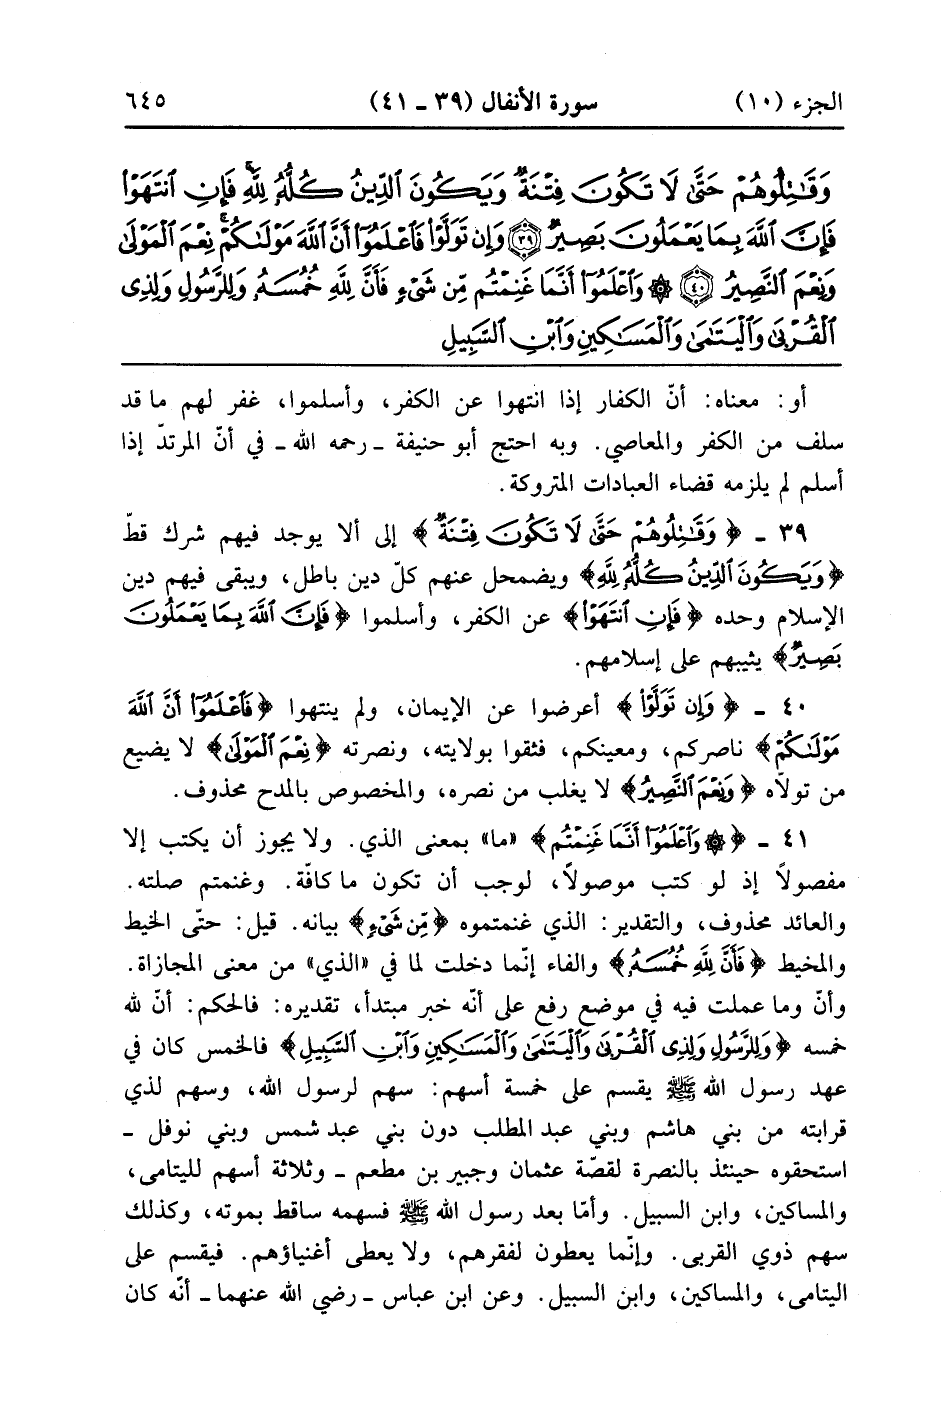 الجزء (١٠) سورة الأنفال (٣٩ ـ ٤١) ٦٤٥
وَقَٰتِلُوهُمْ حَتَّىٰ لَا تَكُونَ فِتْنَةٌ وَيَكُونَ ٱلدِّينُ كُلُّهُۥ لِلَّهِۚ فَإِنِ ٱنتَهَوْا۟
فَإِنَّ ٱللَّهَ بِمَا يَعْمَلُونَ بَصِيرٌ ٣٩ وَإِن تَوَلَّوْا۟ فَٱعْلَمُوٓا۟ أَنَّ ٱللَّهَ مَوْلَىٰكُمْۚ نِعْمَ ٱلْمَوْلَىٰ
وَنِعْمَ ٱلنَّصِيرُ ٤٠ ۞ وَٱعْلَمُوٓا۟ أَنَّمَا غَنِمْتُم مِّن شَىْءٍ فَأَنَّ لِلَّهِ خُمُسَهُۥ وَلِلرَّسُولِ وَلِذِى
ٱلْقُرْبَىٰ وَٱلْيَتَٰمَىٰ وَٱلْمَسَٰكِينِ وَٱبْنِ ٱلسَّبِيلِ
أو: معناه: أنّ الكفار إذا انتهوا عن الكفر، وأسلموا، غفر لهم ما قد
سلف من الكفر والمعاصي. وبه احتج أبو حنيفة ـ رحمه الله ـ في أنّ المرتدّ إذا
أسلم لم يلزمه قضاء العبادات المتروكة.
٣٩ ـ ﴿وَقَٰتِلُوهُمْ حَتَّىٰ لَا تَكُونَ فِتْنَةٌ﴾ إلى ألا يوجد فيهم شرك قطّ
﴿وَيَكُونَ ٱلدِّينُ كُلُّهُۥ لِلَّهِ﴾ ويضمحل عنهم كلّ دين باطل، ويبقى فيهم دين
الإسلام وحده ﴿فَإِنِ ٱنتَهَوْا۟﴾ عن الكفر، وأسلموا ﴿فَإِنَّ ٱللَّهَ بِمَا يَعْمَلُونَ
بَصِيرٌ﴾ يثيبهم على إسلامهم.
٤٠ ـ ﴿وَإِن تَوَلَّوْا۟﴾ أعرضوا عن الإيمان، ولم ينتهوا ﴿فَٱعْلَمُوٓا۟ أَنَّ ٱللَّهَ
مَوْلَىٰكُمْ﴾ ناصركم، ومعينكم، فثقوا بولايته، ونصرته ﴿نِعْمَ ٱلْمَوْلَىٰ﴾ لا يضيع
من تولاّه ﴿وَنِعْمَ ٱلنَّصِيرُ﴾ لا يغلب من نصره، والمخصوص بالمدح محذوف.
٤١ ـ ﴿۞ وَٱعْلَمُوٓا۟ أَنَّمَا غَنِمْتُم﴾ «ما» بمعنى الذي. ولا يجوز أن يكتب إلا
مفصولاً إذ لو كتب موصولاً، لوجب أن تكون ما كافّة. وغنمتم صلته.
والعائد محذوف، والتقدير: الذي غنمتموه ﴿مِّن شَىْءٍ﴾ بيانه. قيل: حتّى الخيط
والمخيط ﴿فَأَنَّ لِلَّهِ خُمُسَهُۥ﴾ والفاء إنّما دخلت لما في «الذي» من معنى المجازاة.
وأنّ وما عملت فيه في موضع رفع على أنّه خبر مبتدأ، تقديره: فالحكم: أنّ لله
خمسه ﴿وَلِلرَّسُولِ وَلِذِى ٱلْقُرْبَىٰ وَٱلْيَتَٰمَىٰ وَٱلْمَسَٰكِينِ وَٱبْنِ ٱلسَّبِيلِ﴾ فالخمس كان في
عهد رسول الله ﷺ يقسم على خمسة أسهم: سهم لرسول الله، وسهم لذي
قرابته من بني هاشم وبني عبد المطلب دون بني عبد شمس وبني نوفل ـ
استحقوه حينئذ بالنصرة لقصّة عثمان وجبير بن مطعم ـ وثلاثة أسهم لليتامى،
والمساكين، وابن السبيل. وأمّا بعد رسول الله ﷺ فسهمه ساقط بموته، وكذلك
سهم ذوي القربى. وإنّما يعطون لفقرهم، ولا يعطى أغنياؤهم. فيقسم على
اليتامى، والمساكين، وابن السبيل. وعن ابن عباس ـ رضي الله عنهما ـ أنّه كان